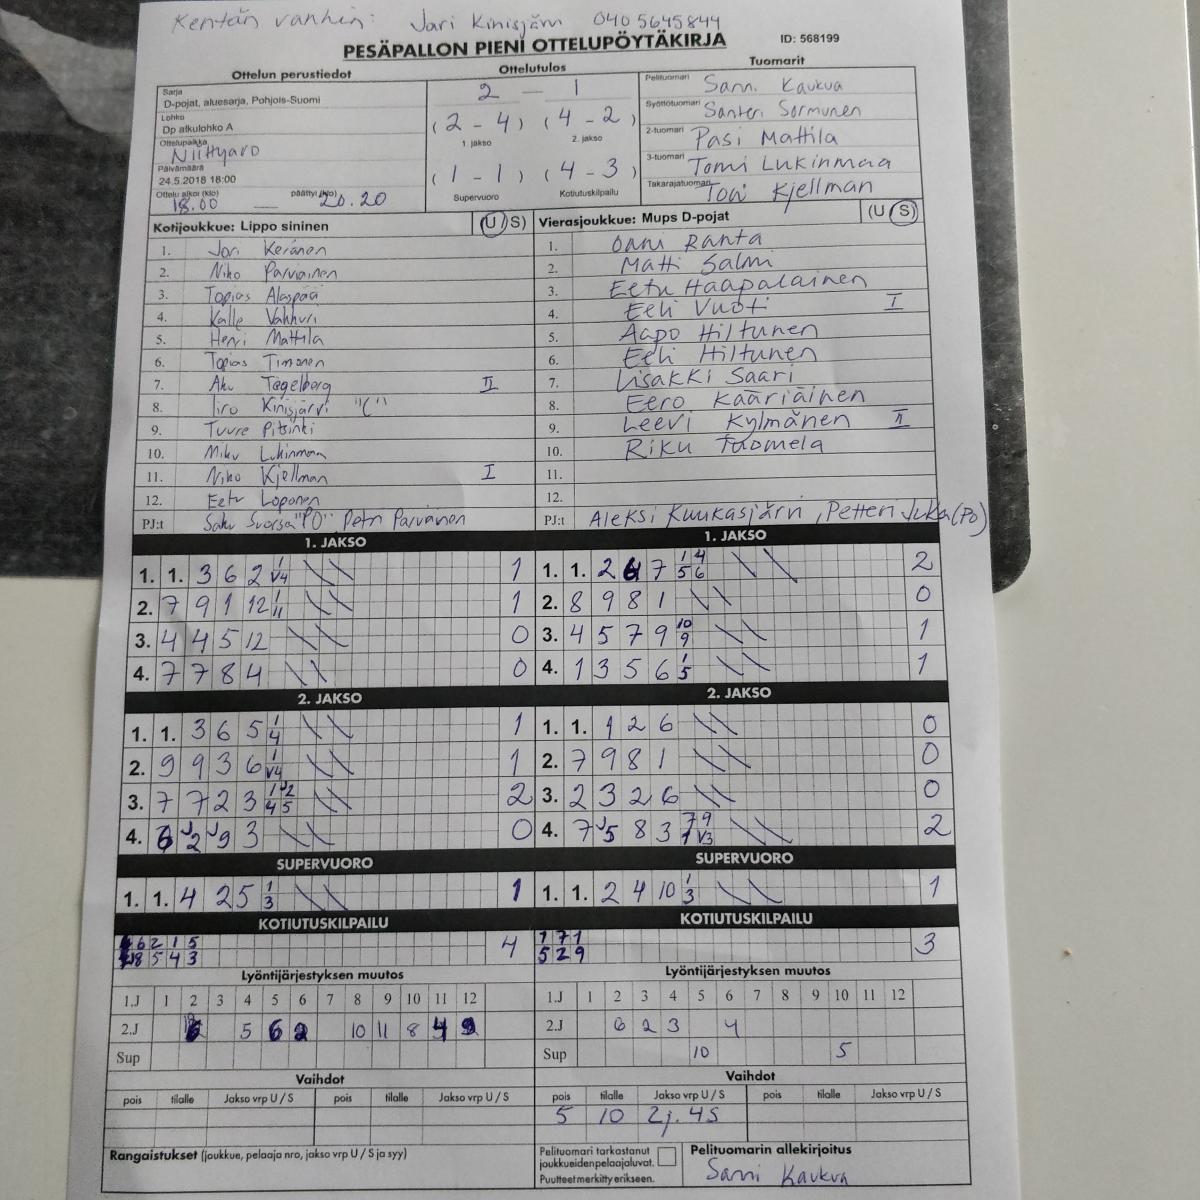 Kentän vanhin: Jari Kinisjärvi 0405645844
PESÄPALLON PIENI OTTELUPÖYTÄKIRJA ID: 568199
Ottelun perustiedot
Sarja
D-pojat, aluesarja, Pohjois-Suomi
Lohko
Dp alkulohko A
Ottelupaikka
Niittyaro
Päivämäärä
24.5.2018 18:00
Ottelu alkoi (klo) päättyi (klo)
18.00 — 20.20
Ottelutulos
2 — 1
(2 - 4) (4 - 2)
1. jakso 2. jakso
(1 - 1) (4 - 3)
Supervuoro Kotiutuskilpailu
Tuomarit
Pelituomari Sami Kaukua
Syöttötuomari Santeri Sormunen
2-tuomari Pasi Mattila
3-tuomari Tomi Lukinmaa
Takarajatuomari Toni Kjellman
Kotijoukkue: Lippo sininen (U/S)
1. Jori Keränen
2. Niko Parviainen
3. Topias Alaspää
4. Kalle Vahhuri
5. Henri Mattila
6. Topias Timonen
7. Aku Tegelberg II
8. Iiro Kinisjärvi "C"
9. Tuure Pitsinki
10. Miku Lukinmaa
11. Niko Kjellman I
12. Eetu Loponen
PJ:t Saku Suorsa "PO" Petri Parviainen
Vierasjoukkue: Mups D-pojat (U/S)
1. Onni Ranta
2. Matti Salmi
3. Eetu Haapalainen
4. Eeli Vuoti I
5. Aapo Hiltunen
6. Eeli Hiltunen
7. Iisakki Saari
8. Eero Kääriäinen
9. Leevi Kylmänen II
10. Riku Tuomela
11.
12.
PJ:t Aleksi Kuukasjärvi, Petteri Juka (PO)
1. JAKSO
1. 1. 3 6 2 1 V4 1
2. 7 9 1 12 1 11 1
3. 4 4 5 12 0
4. 7 7 8 4 0
2. JAKSO
1. 1. 3 6 5 1 4 1
2. 9 9 3 6 1 V4 1
3. 7 7 2 3 1 J2 4 5 2
4. 6 J2 J9 3 0
SUPERVUORO
1. 1. 4 2 5 1 3 1
KOTIUTUSKILPAILU
6 2 1 5 4
8 5 4 3
Lyöntijärjestyksen muutos
1.J 1 2 3 4 5 6 7 8 9 10 11 12
2.J 5 6 2 10 11 8 4 9
Sup
Vaihdot
pois tilalle Jakso vrp U / S pois tilalle Jakso vrp U / S
Rangaistukset (joukkue, pelaaja nro, jakso vrp U / S ja syy)
1. JAKSO
1. 1. 2 4 7 1 4 5 6 2
2. 8 9 8 1 0
3. 4 5 7 9 10 9 1
4. 1 3 5 6 1 5 1
2. JAKSO
1. 1. 1 2 6 0
2. 7 9 8 1 0
3. 2 3 2 6 0
4. 7 J5 8 3 7 9 1 V3 2
SUPERVUORO
1. 1. 2 4 10 1 3 1
KOTIUTUSKILPAILU
1 7 1 3
5 2 9
Lyöntijärjestyksen muutos
1.J 1 2 3 4 5 6 7 8 9 10 11 12
2.J 6 2 3 4
Sup 10 5
Vaihdot
pois tilalle Jakso vrp U / S pois tilalle Jakso vrp U / S
5 10 2j. 4S
Pelituomari tarkastanut
joukkueiden pelaajaluvat.
Puutteet merkitty erikseen.
Pelituomarin allekirjoitus
Sami Kaukua